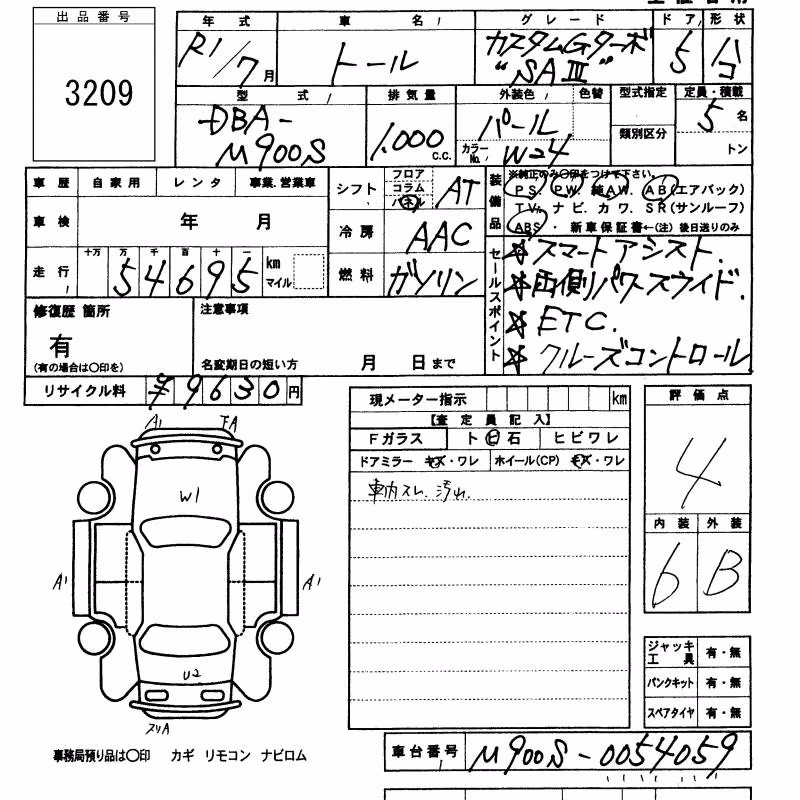 出品番号
3209
年式 車名 グレード ドア 形状
R1/7月 トール カスタムGターボ "SAIII" 5 ハコ
型式 排気量 外装色 色替 型式指定 定員・積載
DBA-M900S 1,000 C.C. パール カラーNo. W24 類別区分 5名
トン
車歴 自家用 レンタ 事業.営業車
車検 年 月
走行 十万 万 千 百 十 一
54695 km マイル
シフト フロア コラム パネル AT
冷房 AAC
燃料 ガソリン
装備品
※純正のみ〇印をつけて下さい。
PS. PW. 純AW. AB(エアバック)
TV. ナビ. カワ. SR(サンルーフ)
ABS ・ 新車保証書←(注) 後日送りのみ
セールスポイント
☆スマートアシスト.
☆両側パワースライド.
☆ETC.
☆クルーズコントロール
修復歴 箇所
有
(有の場合は〇印を)
注意事項
名変期日の短い方 月 日まで
リサイクル料 ¥9630円
現メーター指示 km
【査定員記入】
Fガラス ト 飛 石 ヒビワレ
ドアミラー キズ・ワレ ホイール(CP) キズ・ワレ
車内スレ. 汚れ.
評価点
4
内装 外装
6 B
ジャッキ 工具 有・無
パンクキット 有・無
スペアタイヤ 有・無
A1
W1
A1 A1
U2
スリA
事務局預り品は〇印 カギ リモコン ナビロム
車台番号 M900S-0054059